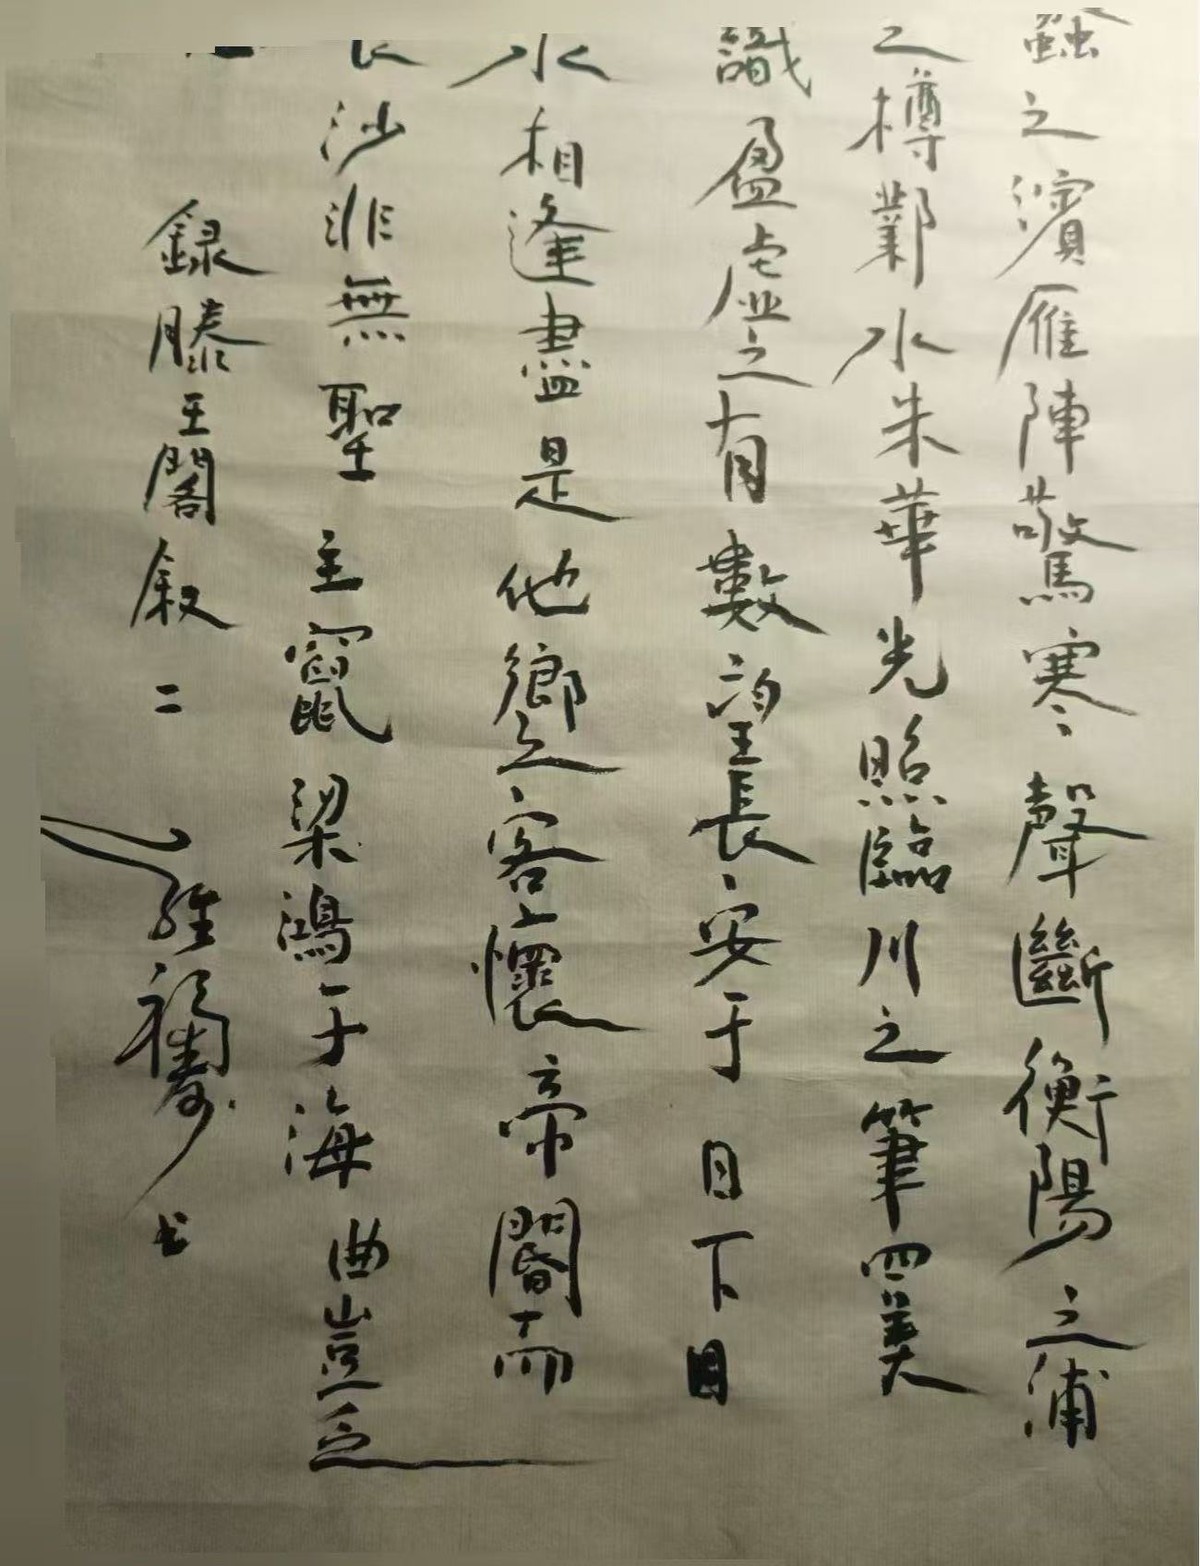 蠡之濱雁陣驚寒聲斷衡陽之浦
之樽鄴水朱華光照臨川之筆四美
識盈虛之有數望長安于日下目
水相逢盡是他鄉之客懷帝閽而
長沙非無聖主竄梁鴻于海曲豈乏
錄滕王閣敘二
維福壽书